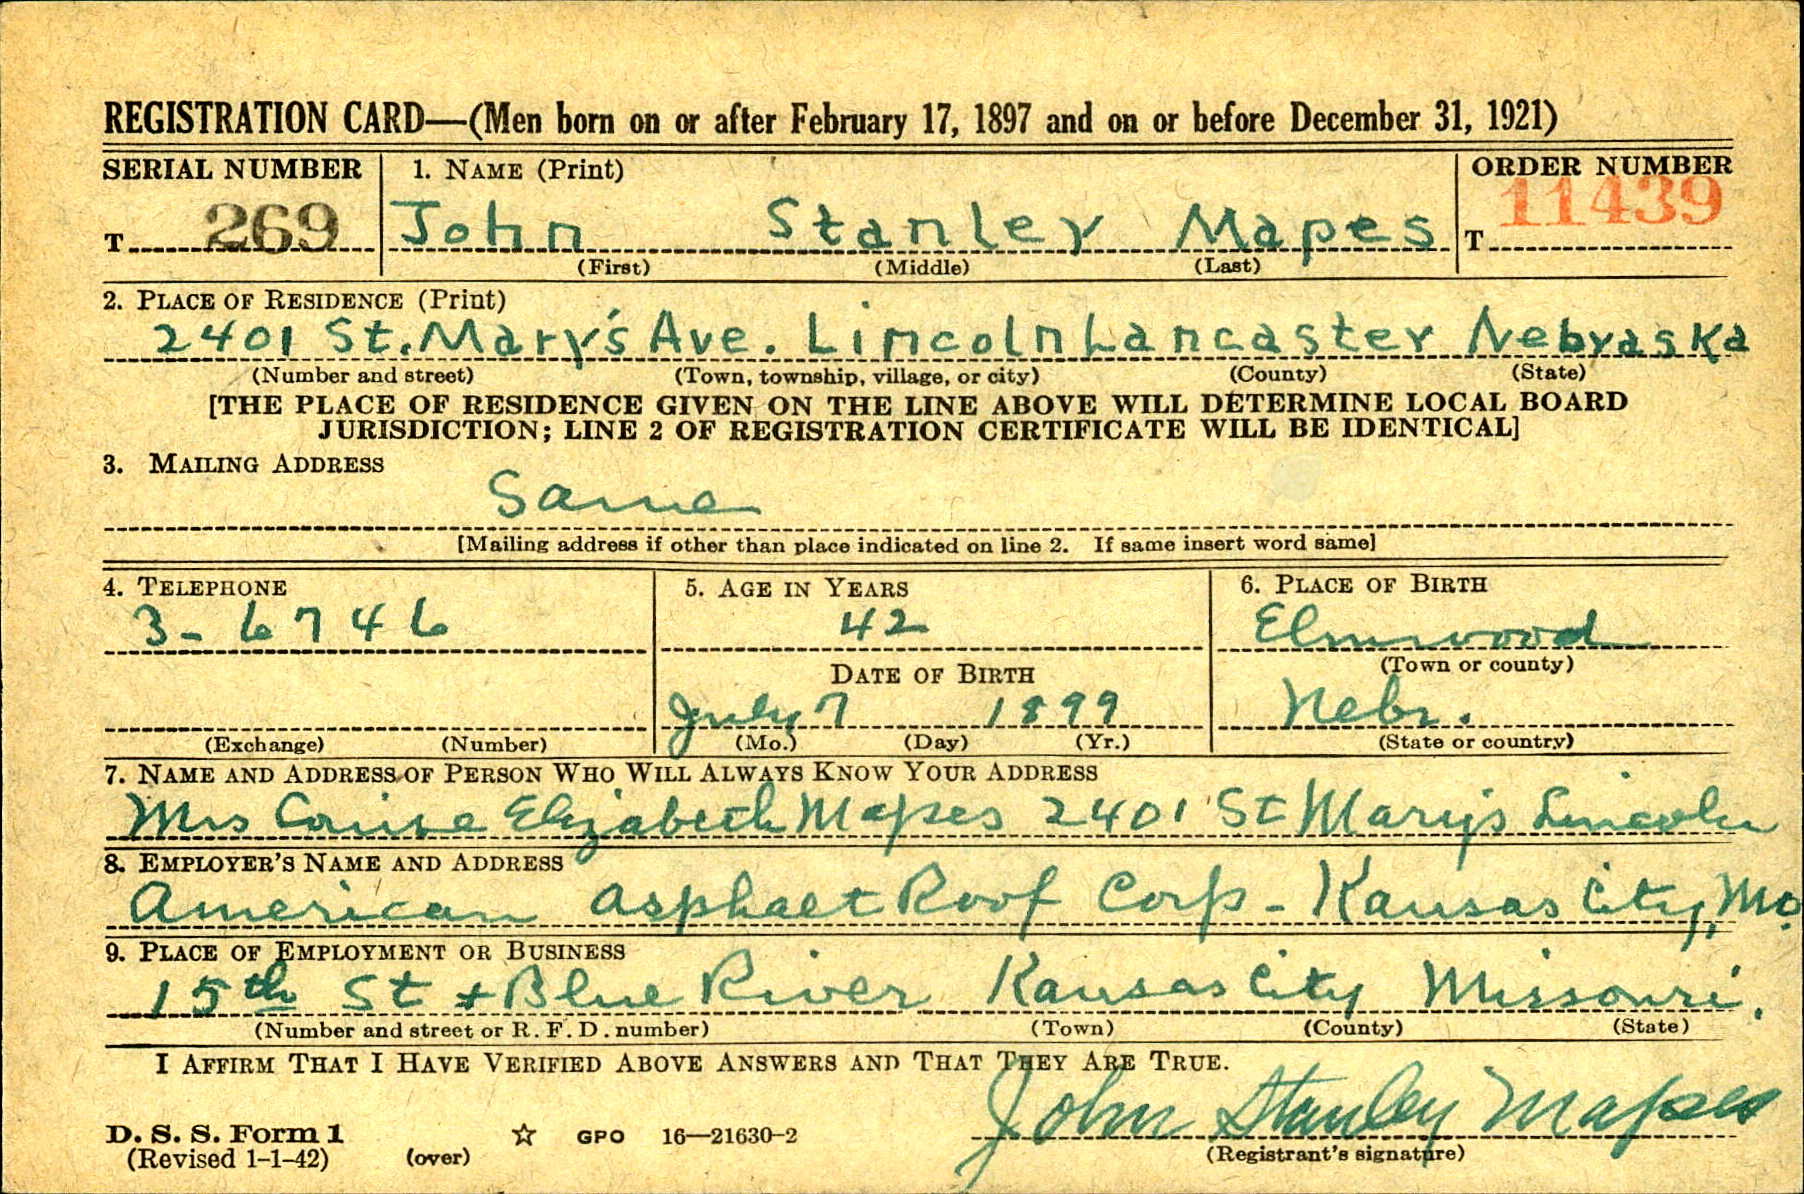 REGISTRATION CARD—(Men born on or after February 17, 1897 and on or before December 31, 1921)
SERIAL NUMBER 1. NAME (Print) ORDER NUMBER
T 269 John Stanley Mapes T 11439
(First) (Middle) (Last)
2. PLACE OF RESIDENCE (Print)
2401 St. Mary's Ave. Lincoln Lancaster Nebraska
(Number and street) (Town, township, village, or city) (County) (State)
[THE PLACE OF RESIDENCE GIVEN ON THE LINE ABOVE WILL DETERMINE LOCAL BOARD
JURISDICTION; LINE 2 OF REGISTRATION CERTIFICATE WILL BE IDENTICAL]
3. MAILING ADDRESS
Same
[Mailing address if other than place indicated on line 2. If same insert word same]
4. TELEPHONE 5. AGE IN YEARS 6. PLACE OF BIRTH
3-6746 42 Elmwood
(Town or county)
DATE OF BIRTH
July 7 1899 Nebr.
(Exchange) (Number) (Mo.) (Day) (Yr.) (State or country)
7. NAME AND ADDRESS OF PERSON WHO WILL ALWAYS KNOW YOUR ADDRESS
Mrs Louise Elizabeth Mapes 2401 St Mary's Lincoln
8. EMPLOYER'S NAME AND ADDRESS
American Asphalt Roof Corp - Kansas City, Mo.
9. PLACE OF EMPLOYMENT OR BUSINESS
15th St + Blue River Kansas City Missouri.
(Number and street or R. F. D. number) (Town) (County) (State)
I AFFIRM THAT I HAVE VERIFIED ABOVE ANSWERS AND THAT THEY ARE TRUE.
John Stanley Mapes
D. S. S. Form 1
(Revised 1-1-42) (over) ☆ GPO 16—21630-2 (Registrant's signature)